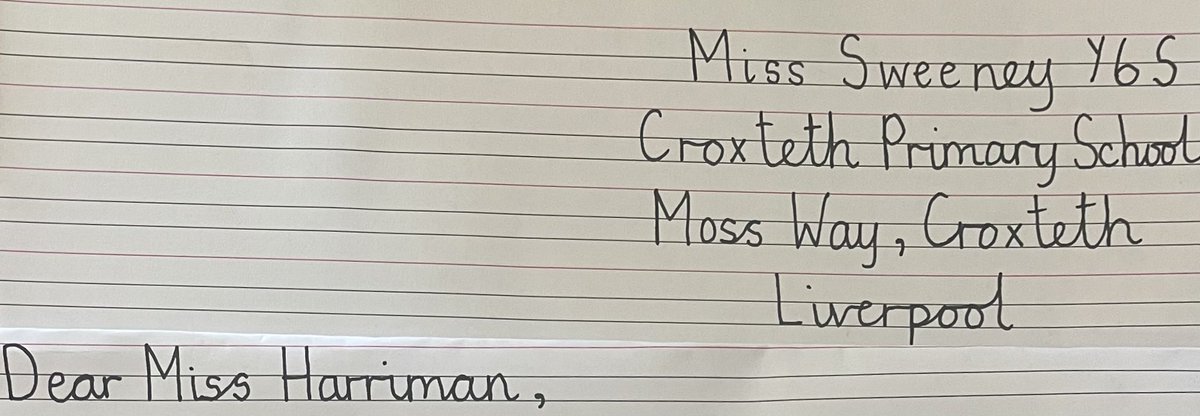 Miss Sweeney Y6S
Croxteth Primary School
Moss Way, Croxteth
Liverpool
Dear Miss Harriman,